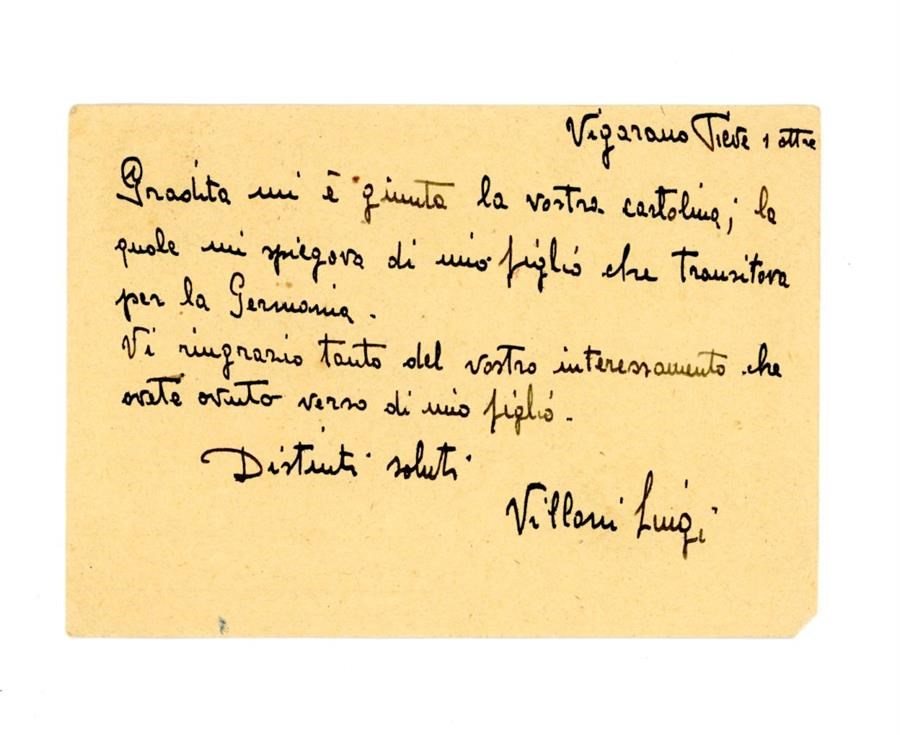 Vigarano Pieve 1 ottre
Gradita mi è giunta la vostra cartolina; la
quale mi spiegava di mio figlio che transitava
per la Germania.
Vi ringrazio tanto del vostro interessamento che
avete avuto verso di mio figlio.
Distinti saluti
Villani Luigi